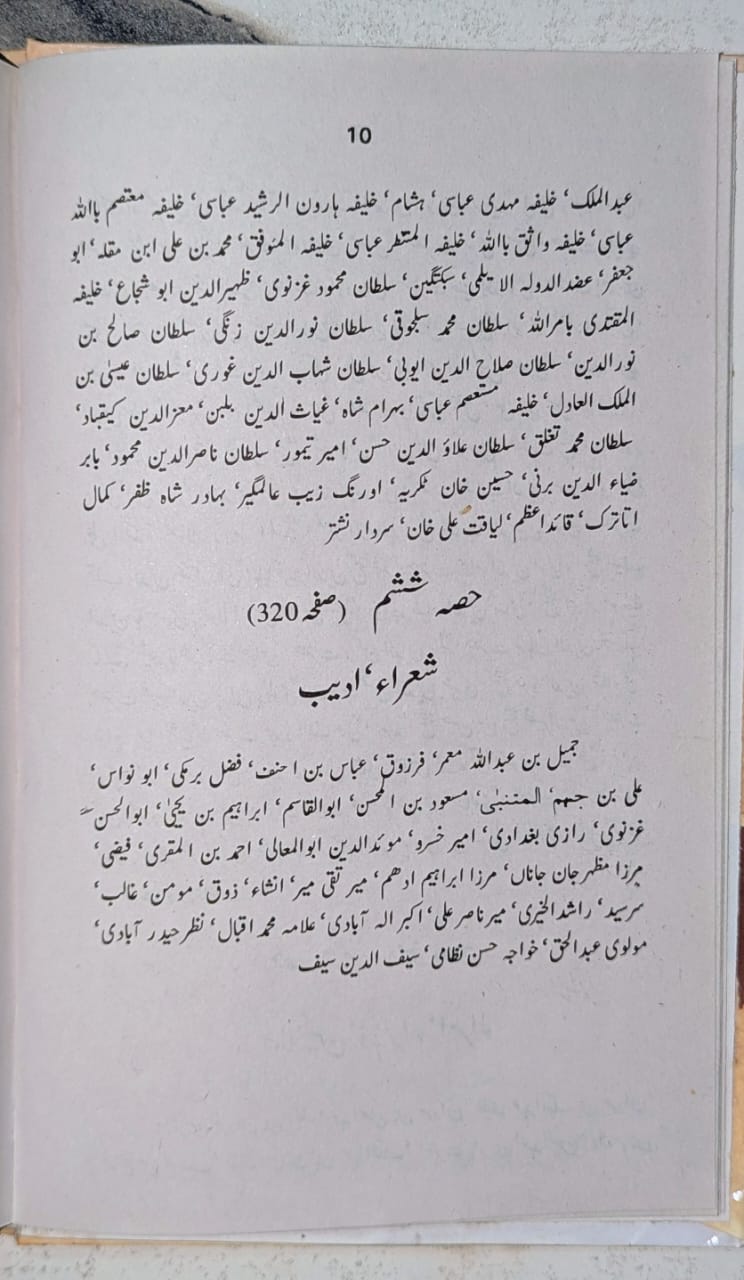 10
عبدالملک‘ خلیفہ مہدی عباسی‘ ہشام‘ خلیفہ ہارون الرشید عباسی‘ خلیفہ معتصم باللہ
عباسی‘ خلیفہ واثق باللہ‘ خلیفہ المنتظر عباسی‘ خلیفہ المئوفق‘ محمد بن علی ابن مقلہ‘ ابو
جعفر‘ عضد الدولہ الا یلمی‘ سبکتگین‘ سلطان محمود غزنوی‘ ظہیرالدین ابو شجاع‘ خلیفہ
المقتدی بامراللہ‘ سلطان محمد سلجوقی‘ سلطان نورالدین زنگی‘ سلطان صالح بن
نورالدین‘ سلطان صلاح الدین ایوبی‘ سلطان شہاب الدین غوری‘ سلطان عیسیٰ بن
الملک العادل‘ خلیفہ مستعصم عباسی‘ بہرام شاہ‘ غیاث الدین بلبن‘ معزالدین کیقباد‘
سلطان محمد تغلق‘ سلطان علاؤ الدین حسن‘ امیر تیمور‘ سلطان ناصرالدین محمود‘ بابر
ضیاء الدین برنی‘ حسین خان ٹکریہ‘ اورنگ زیب عالمگیر‘ بہادر شاہ ظفر‘ کمال
اتاترک‘ قائداعظم‘ لیاقت علی خان‘ سردار نشتر
حصہ ششم (صفحہ 320)
شعراء‘ ادیب
جمیل بن عبداللہ معمر‘ فرزوق‘ عباس بن احنف‘ فضل برمکی‘ ابو نواس‘
علی بن جہم‘ المتنبیٰ‘ مسعود بن المحسن‘ ابوالقاسم‘ ابراہیم بن یحییٰ‘ ابوالحسن
غزنوی‘ رازی بغدادی‘ امیر خسرو‘ موئدالدین ابوالمعالی‘ احمد بن المقری‘ فیضی‘
مرزا مظہر جان جاناں‘ مرزا ابراہیم ادھم‘ میر تقی میر‘ انشاء‘ ذوق‘ مومن‘ غالب‘
سرسید‘ راشدالخیری‘ میر ناصر علی‘ اکبر الہ آبادی‘ علامہ محمد اقبال‘ نظر حیدر آبادی‘
مولوی عبدالحق‘ خواجہ حسن نظامی‘ سیف الدین سیف